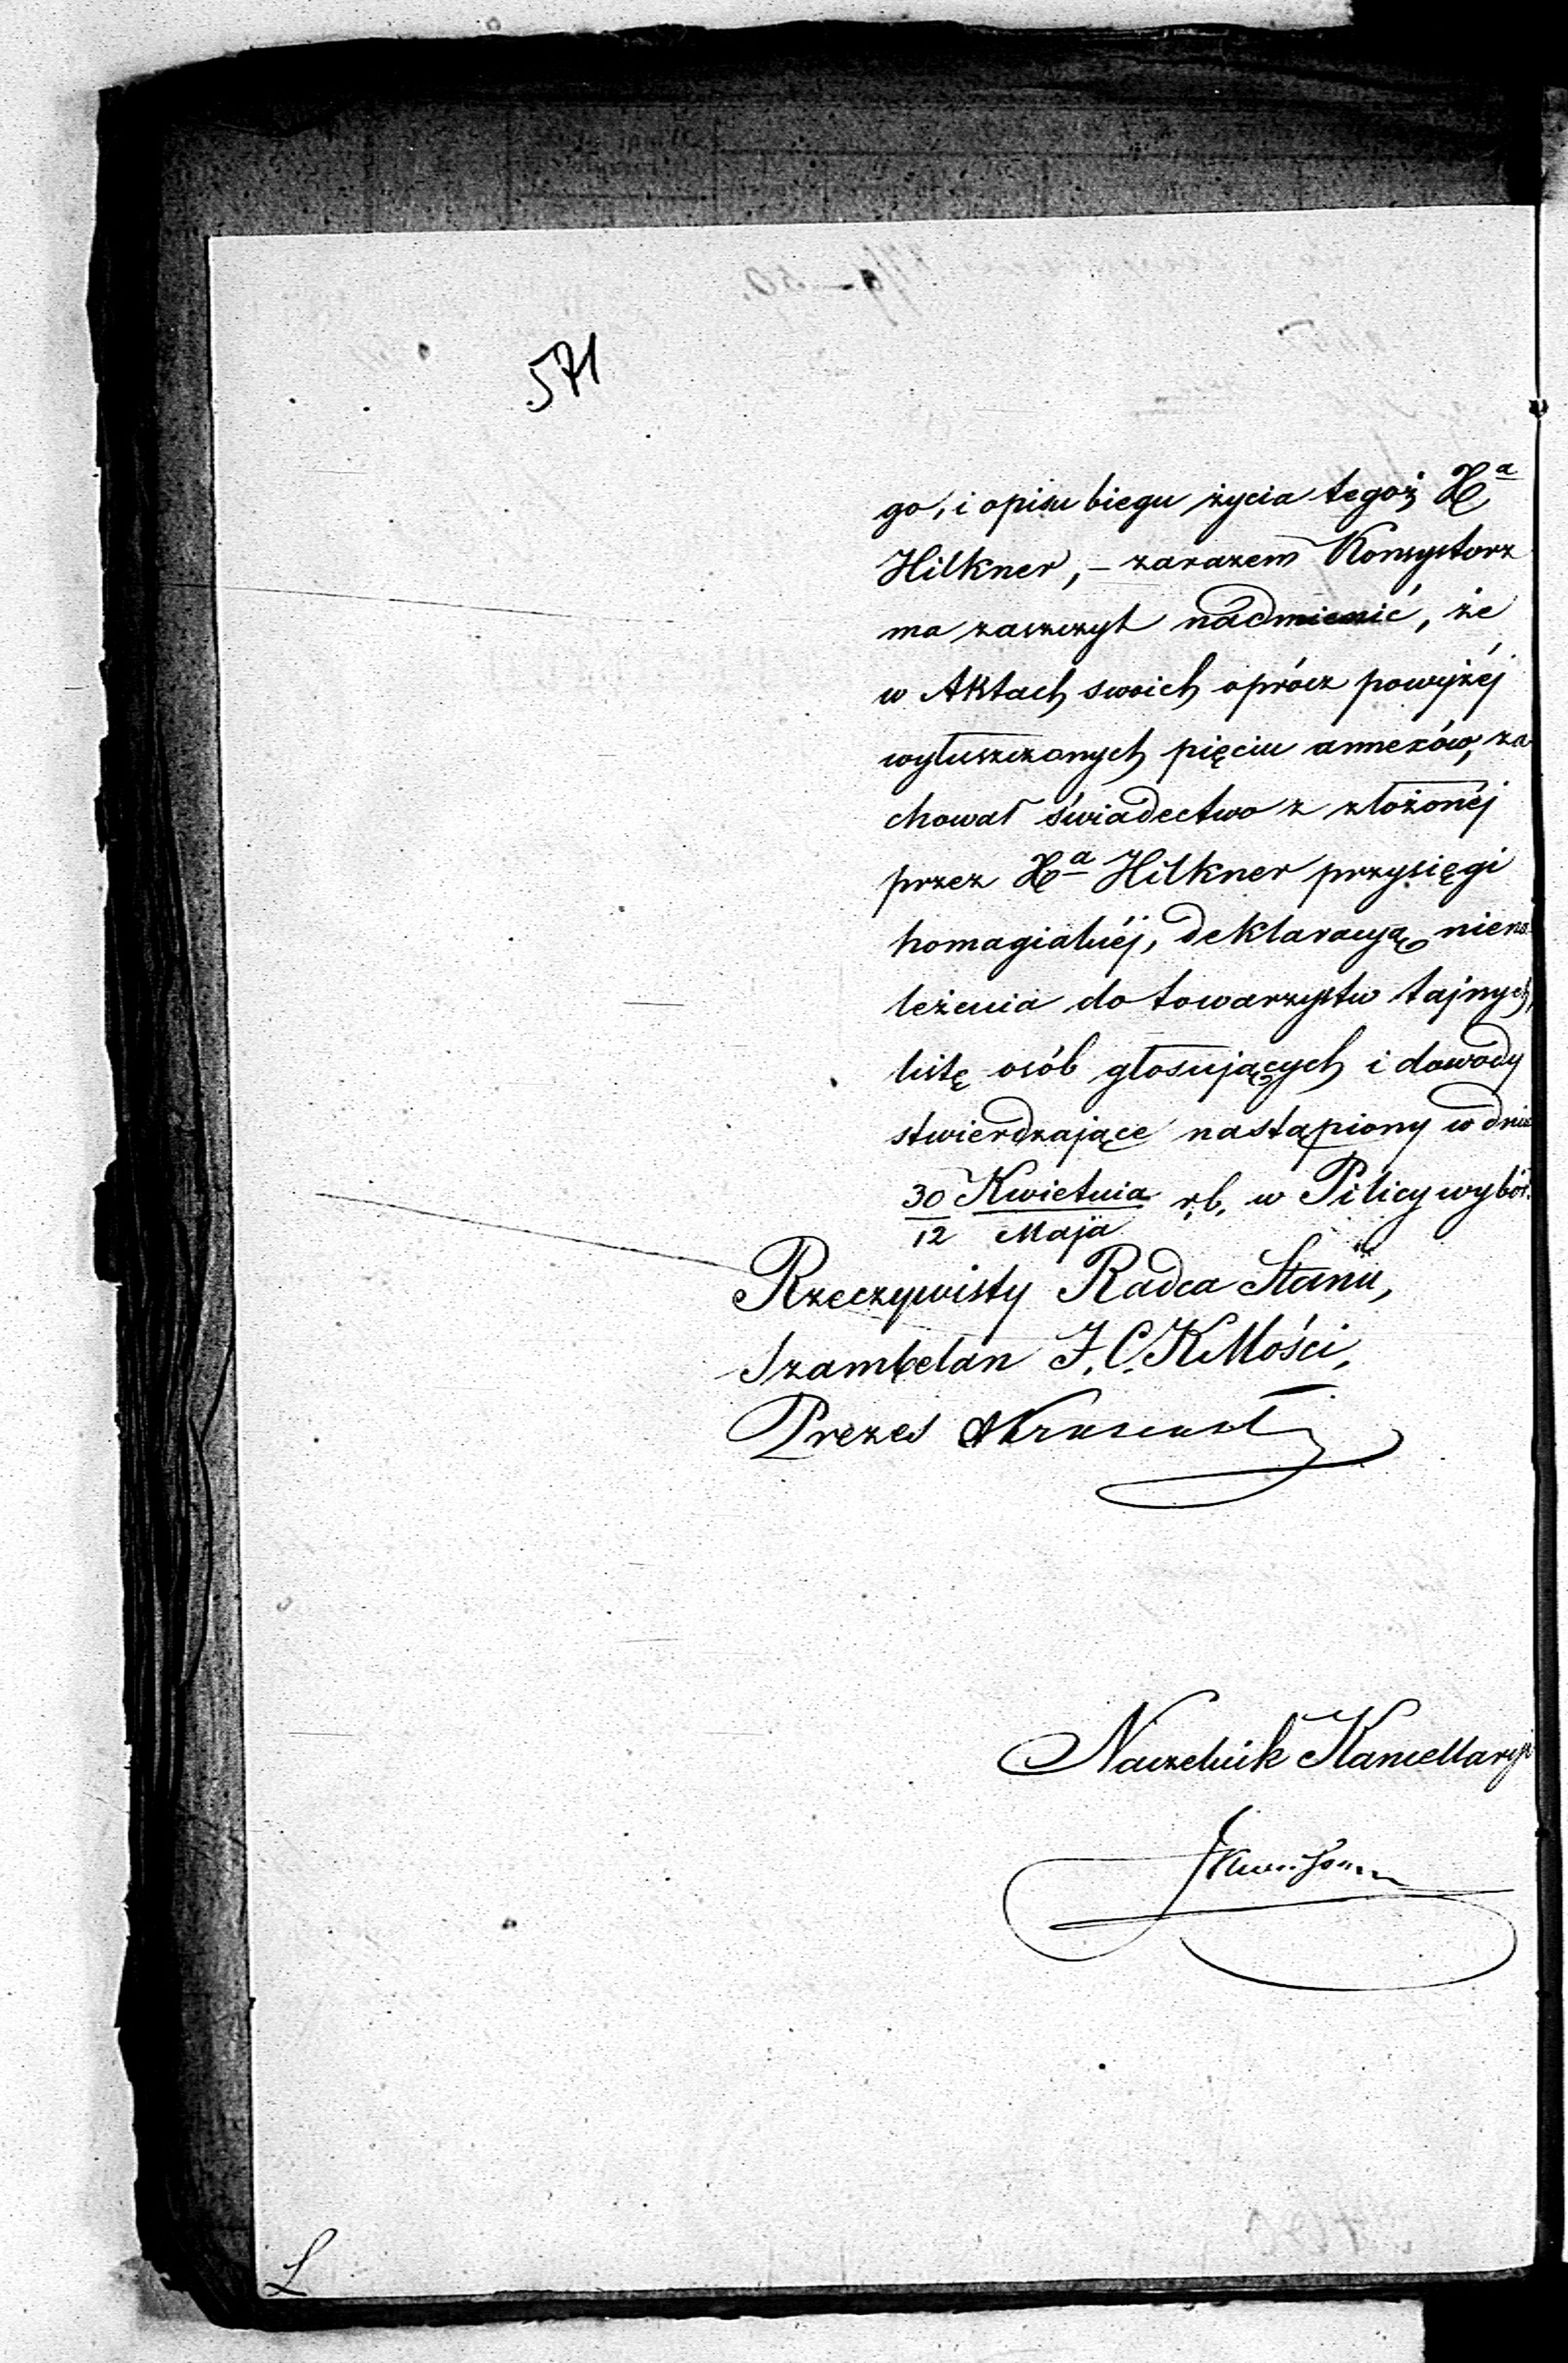 571
go, i opisu biegu życia tegoż Xa
Hilkner, – zarazem Konsystorz
ma zaszczyt nadmienić, że
w Aktach swoich oprócz powyżéj
wyłuszczonych pięciu annexów, za
chował świadectwo z złożonéj
przez Xa Hilkner przysięgi
homagialnéj, deklaracyą niena
leżenia do towarzystw tajnych,
listę osób głosujących i dowody
stwierdzające nastąpiony w dniu
30/12 Kwietnia/Maja r.b. w Pilicy wybór.
Rzeczywisty Radca Stanu,
Szambelan J. C. K Mości,
Prezes
Naczelnik Kancellaryi
L